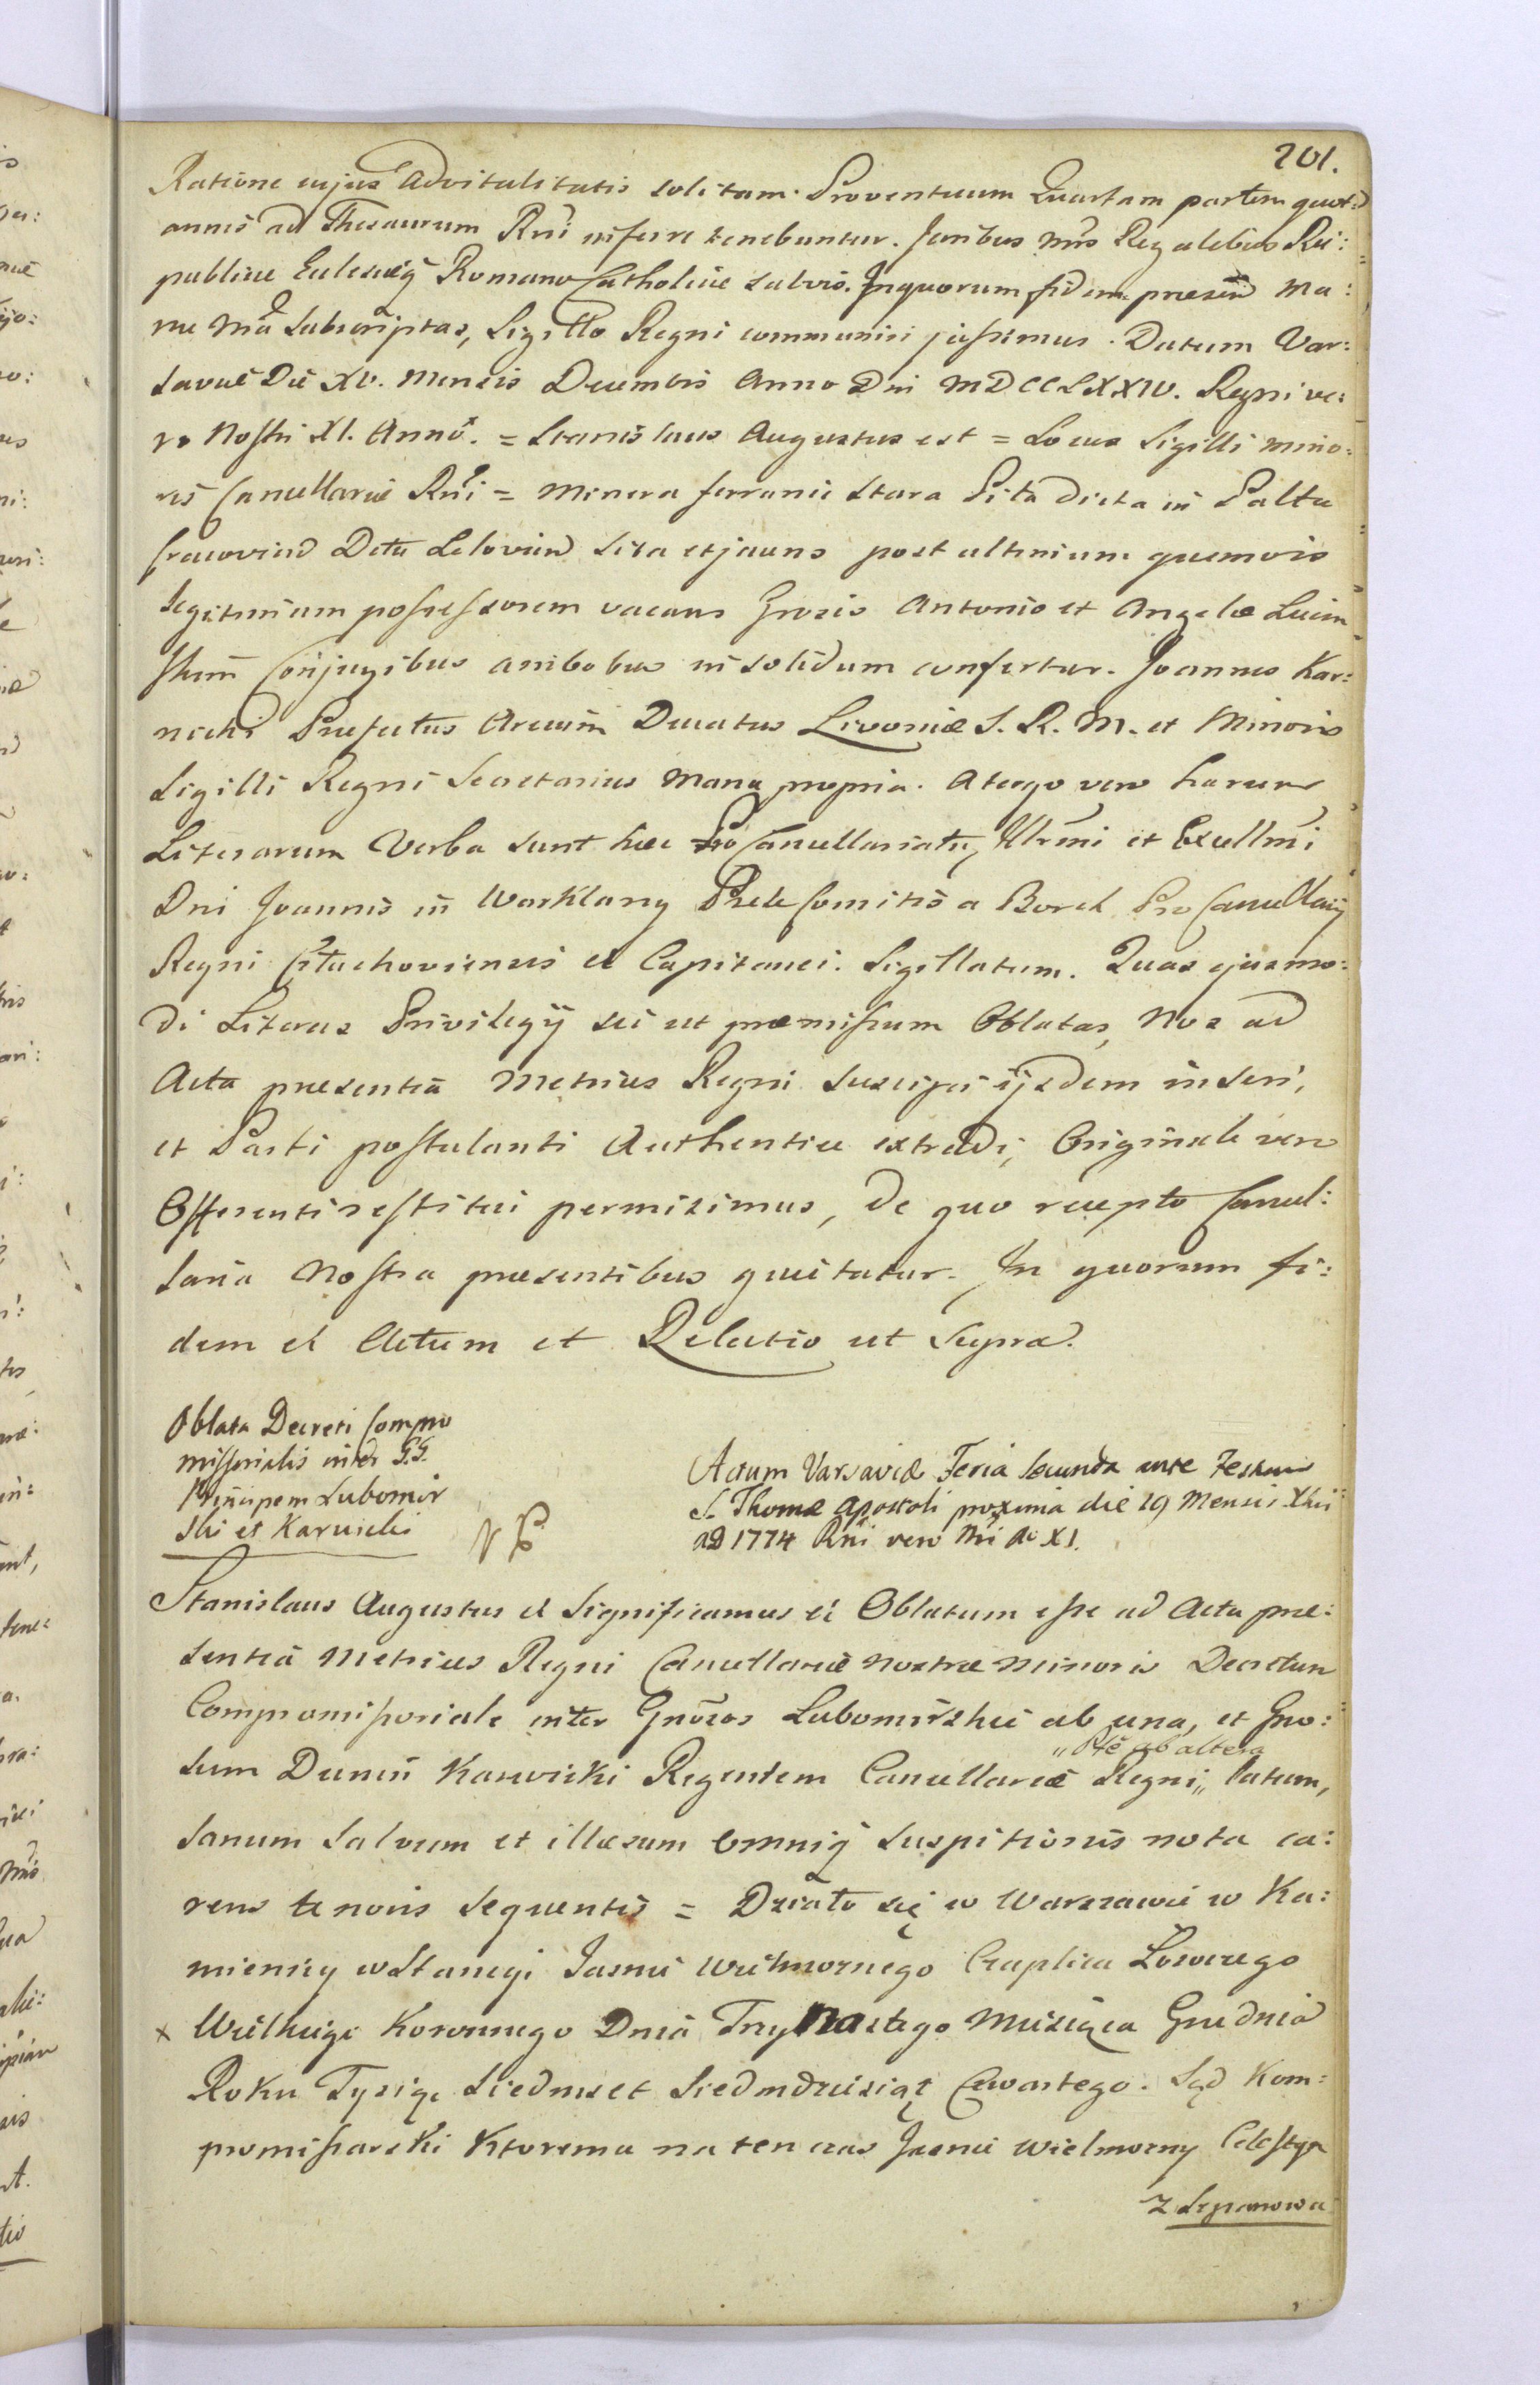 201.
Ratione cujus Advitalitatis solitam Proventuum Quartam partem quot:
annis ad Thesaurum Rni inferre tenebuntur. Juribus nris Regalibus Rei:
publicae Ecclesiaeq Romano Catholicae salvis. In quorum fidem praesen Ma:
nu Nra Subscriptas, Sigillo Regni communiri jussimus. Datum Var:
saviae Die XV. Mensis Decembris Anno Dni MDCCLXXIV. Regni ve:
ro Nostri XI. Anno. = Stanislaus Augustus est = Locus Sigilli mino:
ris Cancellariae Rni = Minera ferranie Stara dicta in Saltu
Cracovien Dctu Lelovien sita et jacens post ultimum quemvis
legitimum possessorem vacans Grosis Antonio et Angelae
Conjugibus ambobus in solidum confertur. Joannes Kar:
nicki Praefectus Arcium Ducatus Livoniae S. R. M. et Minoris
Sigilli Regni Secretarius Manu propria. A tergo vero harum
Literarum Verba sunt haec Pro Cancellariatu Illrmi et Excellmi
Dni Joannis in Warklany Prele Comitis a Borch Pro Cancellarij
Regni Capitanei. Sigillatum. Quas ejusmo:
di Literas Privilegij sic ut praemissum Oblatas, Nos ad
Acta praesentia Metrices Regni suscipi ijsdem inseri,
et Parti postulanti Authentice extradi, Originale vero
Offerenti restitui permisimus, de quo recepto Cancel:
laria Nostra praesentibus quietatur. In quorum fi:
dem et Actum et Relatio ut supra.
Oblata Decreti Compro
missorialis inter G.G.
Principem Lubomir
ski et Karwicki
Actum Varsaviae Feria Secunda ante Festum
S. Thomae Apostoli proxima die 19 Mensis Xbris
AD 1774 Rni vero Nri Ao XI.
Stanislaus Augustus et Significamus et Oblatum esse ad Acta prae:
sentia Metrices Regni Cancellariae Nostrae Minoris Decretum
Compromissoriale inter Gnosos Lubomirskie ab una, et Gno:
sum Dunin Karwicki Regentem Cancellariae Regni „ latum,
„ Pte ab altera
sanum salvum et illaesum omniq suspitionis nota ca:
rens tenoris sequentis = Działo się w Warszawie w Ka:
mienicy w Stancyi Jasnie Wielmoznego Czaplica Łowczego
x Wielkiego Koronnego Dnia Trzynastego Miesiąca Grudnia
Roku Tysiąc Siedmset Siedmdziesiąt Czwartego. Sąd Kom:
promissarski Ktoremu na ten czas Jasnie Wielmozny Celestyn
z Szpanowa